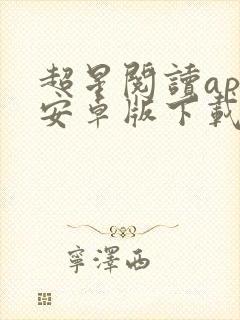 超星閱讀ap
安卓版下載
寧澤西